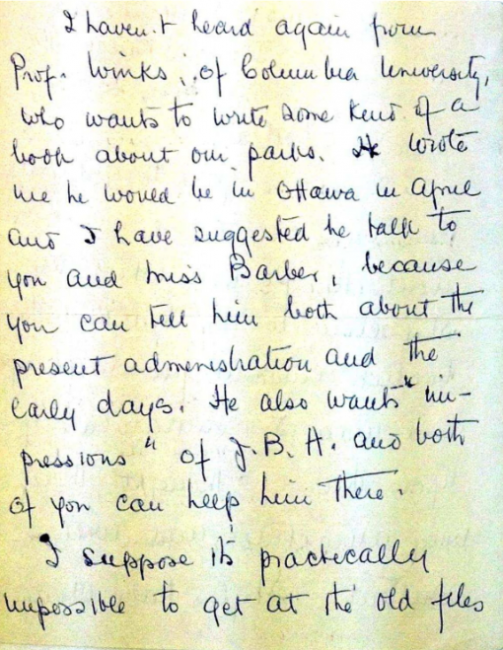 I haven't heard again from
Prof. Winks, of Columbia University,
who wants to write some kind of a
book about our parks. He wrote
me he would be in Ottawa in April
and I have suggested he talk to
you and Miss Barber, because
you can tell him both about the
present administration and the
early days. He also wants "im-
pressions" of J.B.H. and both
of you can help him there.
I suppose it's practically
impossible to get at the old files